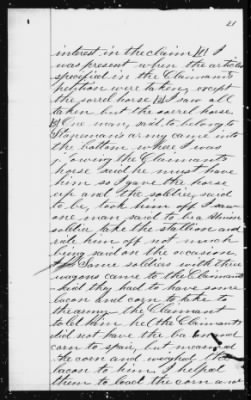 21
interest in the claim [4] I
was present when the articles
specified in the Claimants
petition were taken except
the sorrel horse [5] I saw all
taken but the sorrel horse
[6] One man, said to belong to
army came into
the bottom where I was
plowing the Claimants
horse said he must have
him so I gave the horse
up and the soldier, said
to be, took him off I saw
one man said to be a
soldier take the stallion and
ride him off not much
being said on the occasion,
Some soldiers with three
wagons came to the Claimants
said they had to have some
bacon and corn to take to
the army the Claimant
told him he (the Claimant)
did not have the bacon and
corn to spare, but measured
the corn and weighed the
bacon to him I helped
them to load the corn and